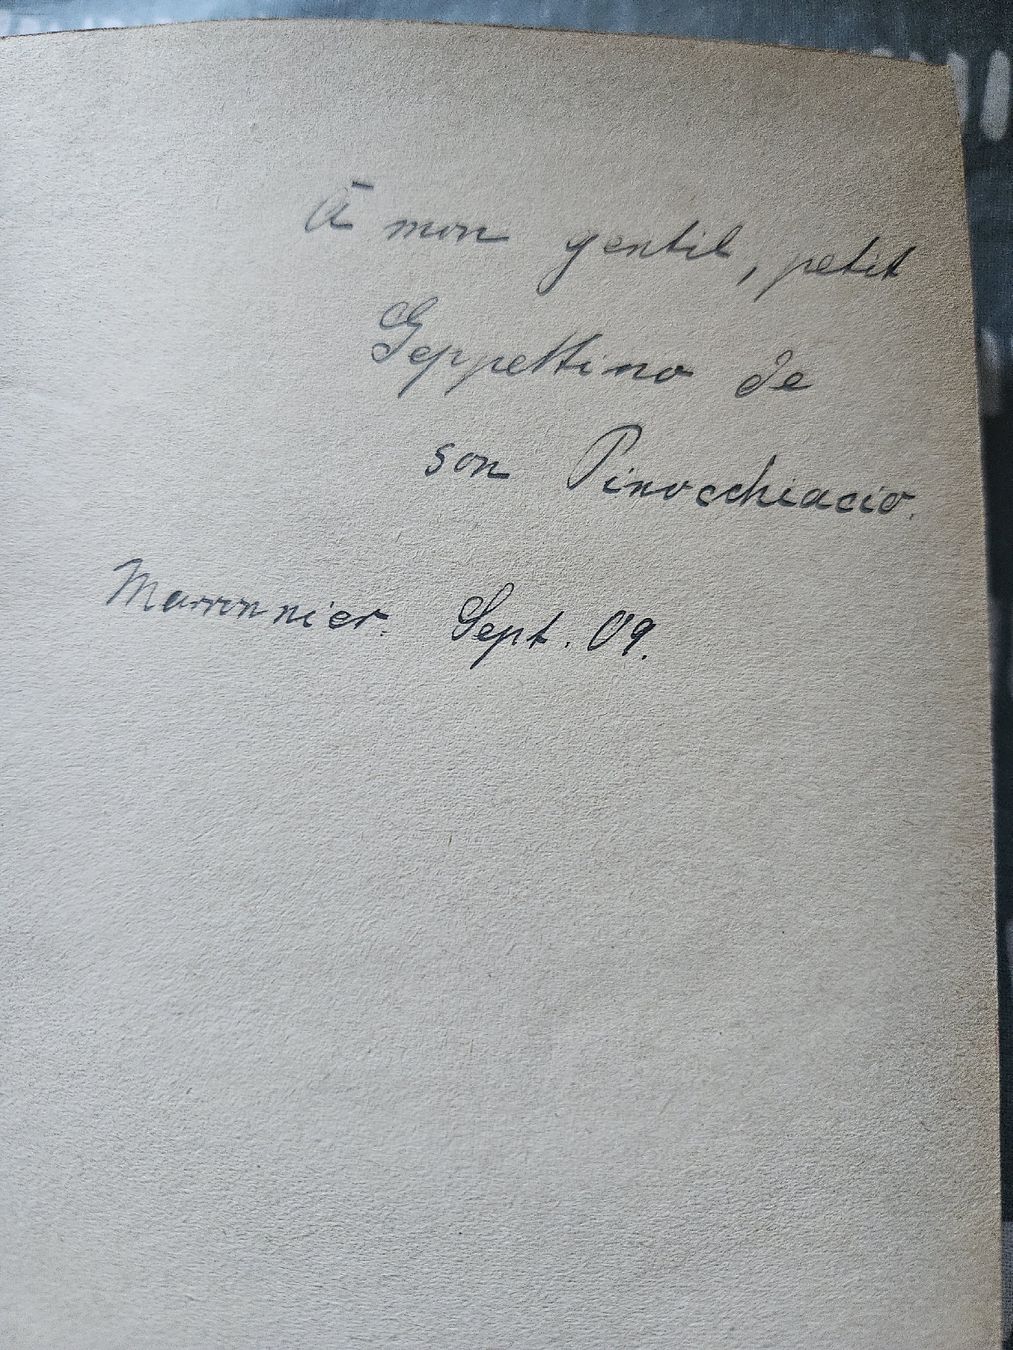 À mon gentil, petit
Geppettino de
son Pinocchiacio.
Marronnier. Sept. 09.